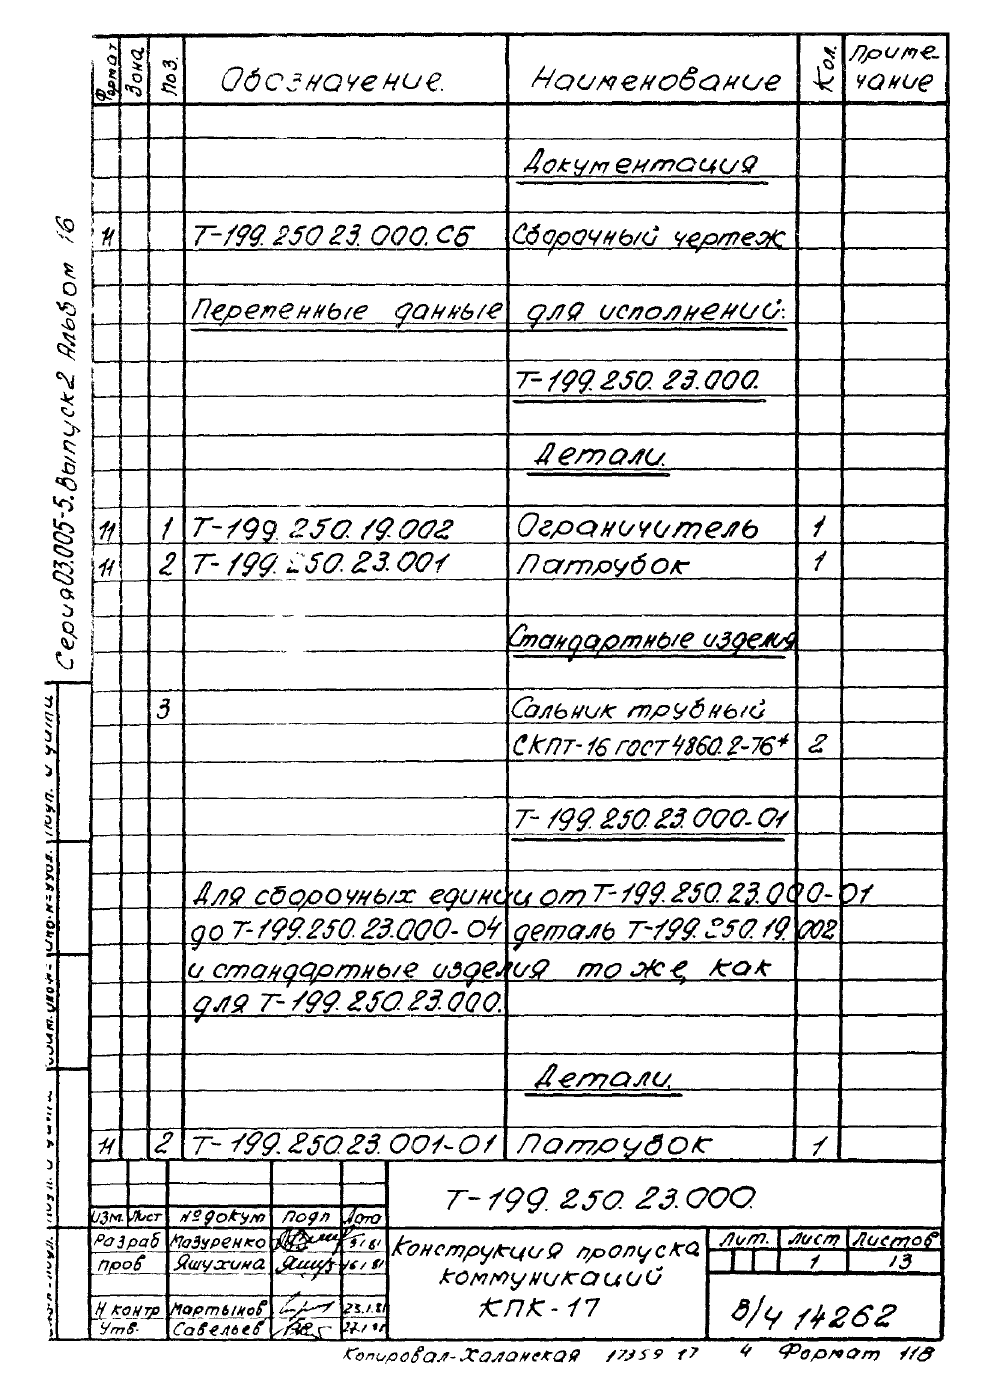 Формат Зона Поз. Обозначение. Наименование Кол. Примечание
Документация
11 Т-199.250 23.000.СБ Сборочный чертеж
Переменные данные для исполнений:
Т-199.250.23.000.
Детали.
11 1 Т-199.250.19.002 Ограничитель 1
11 2 Т-199.250.23.001 Патрубок 1
Стандартные изделия
3 Сальник трубный
СКПТ-16 ГОСТ 4860.2-76* 2
Т-199.250.23.000-01
Для сборочных единиц от Т-199.250.23.000-01
до Т-199.250.23.000-04 деталь Т-199.250.19.002
и стандартные изделия то же, как
для Т-199.250.23.000.
Детали.
11 2 Т-199.250.23.001-01 Патрубок 1
Серия 03.005-5. Выпуск 2 Альбом 16
Т-199.250.23.000.
Изм. Лист № докум Подп Дата
Разраб Мазуренко
Пров Яшухина
Н контр Мартынов 23.1.81
Утв. Савельев
Конструкция пропуска
коммуникаций
КПК-17
Лит. Лист Листов
1 13
В/Ч 14262
Копировал-Халанская 17359 17 4 Формат 11В